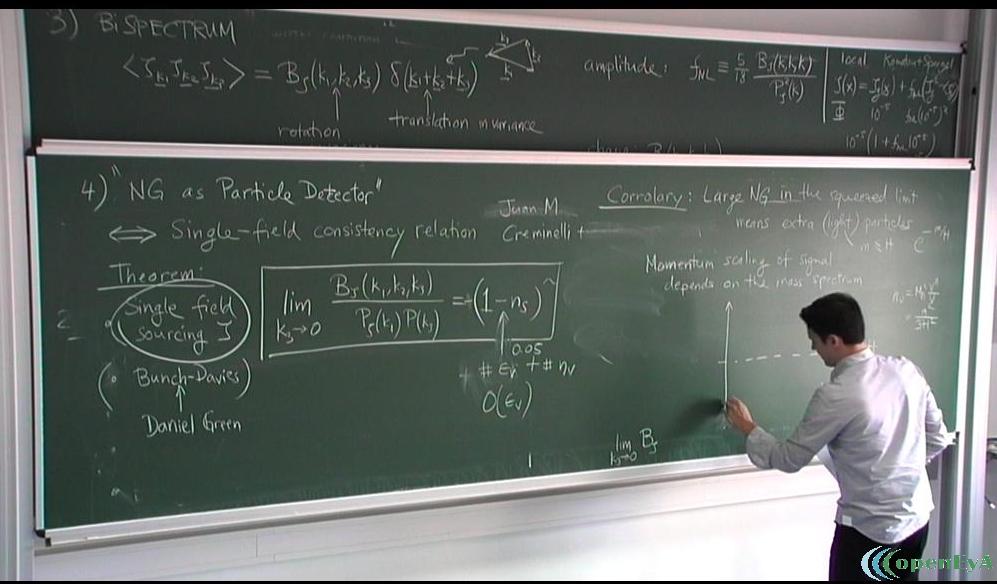 3) BiSPECTRUM
⟨ζ_k₁ ζ_k₂ ζ_k₃⟩ = B_ζ(k₁,k₂,k₃) δ(k₁+k₂+k₃)
rotation
translation invariance
amplitude: f_NL ≡ 5/18 B_ζ(k,k,k)/P_ζ²(k)
local
10⁻⁵
10⁻⁵(1 + f_NL 10⁻⁵)
4) "NG as Particle Detector"
⟺ Single-field consistency relation
Juan M
Creminelli +
Theorem:
Single field
sourcing ζ
(∘ Bunch-Davies)
Daniel Green
lim k₃→0 B_ζ(k₁,k₂,k₃)/P_ζ(k₁)P(k₃) = (1-n_s)
0.05
# ε_v + # η_v
O(ε_v)
Corrolary: Large NG in the squeezed limt
means extra (light) particles
m ≲ H
e^-m/H
Momentum scaling of signal
depends on the mass spectrum
lim k₃→0 B_ζ
openEyA